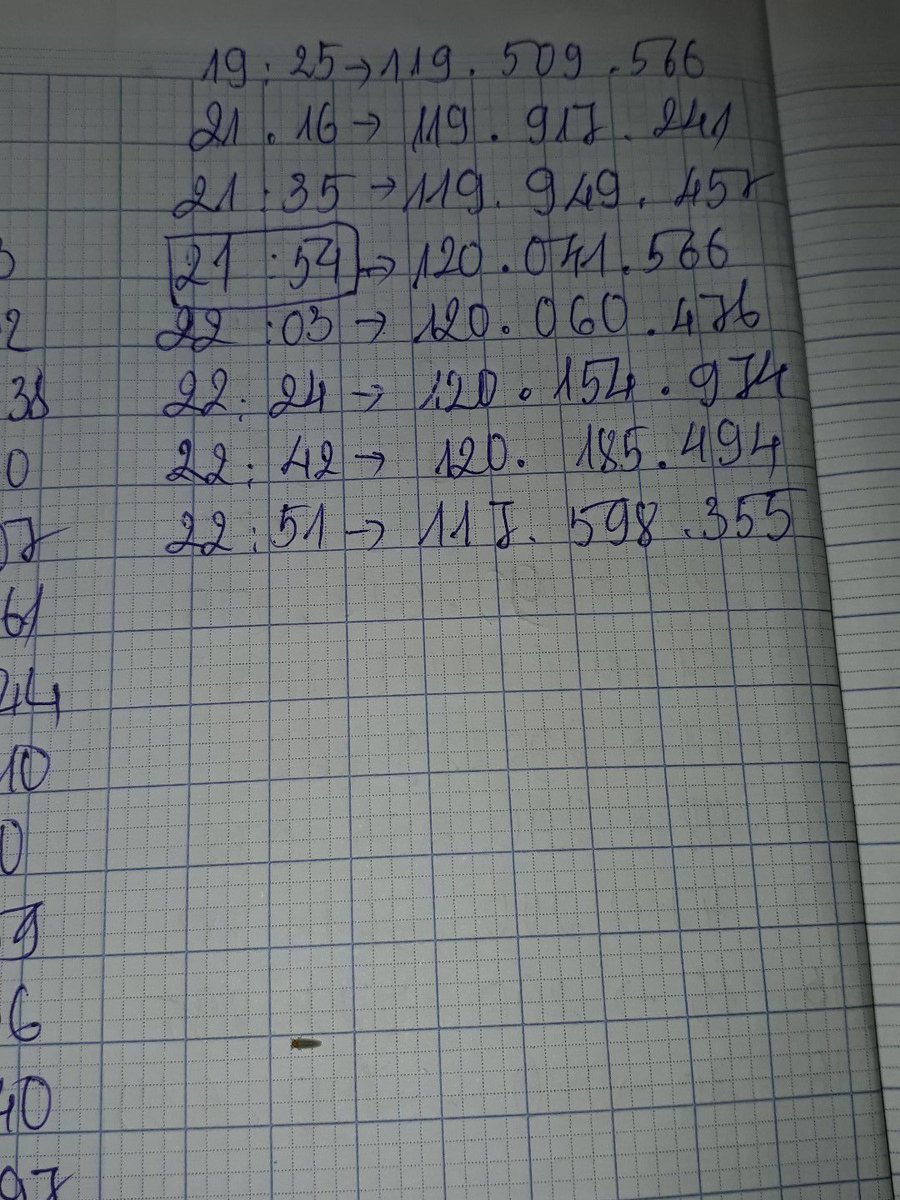 19:25→119.509.566
21.16→119.917.241
21:35→119.949.457
21:54→120.041.566
22:03→120.060.476
22:24→120.154.974
22:42→120.185.494
22:51→117.598.355
2
38
0
07
61
44
10
0
9
6
40
97